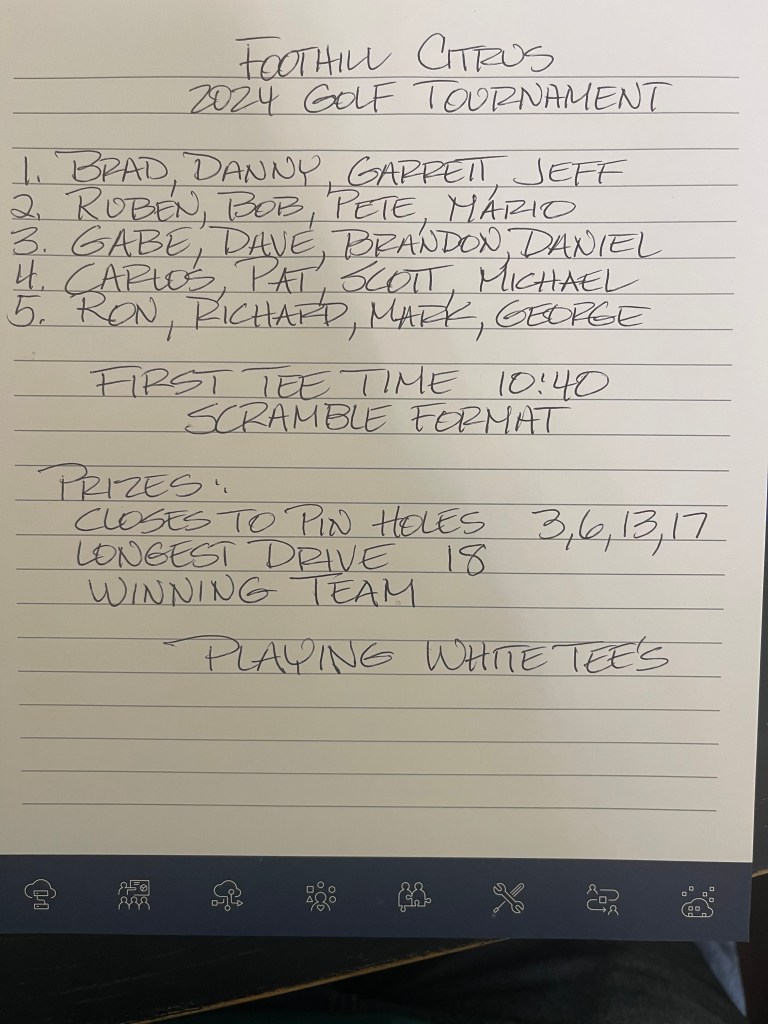 FOOTHILL CITRUS
2024 GOLF TOURNAMENT
1. BRAD, DANNY, GARRETT, JEFF
2. RUBEN, BOB, PETE, MARIO
3. GABE, DAVE, BRANDON, DANIEL
4. CARLOS, PAT, SCOTT, MICHAEL
5. RON, RICHARD, MARK, GEORGE
FIRST TEE TIME 10:40
SCRAMBLE FORMAT
PRIZES:
CLOSES TO PIN HOLES 3,6,13,17
LONGEST DRIVE 18
WINNING TEAM
PLAYING WHITE TEE'S